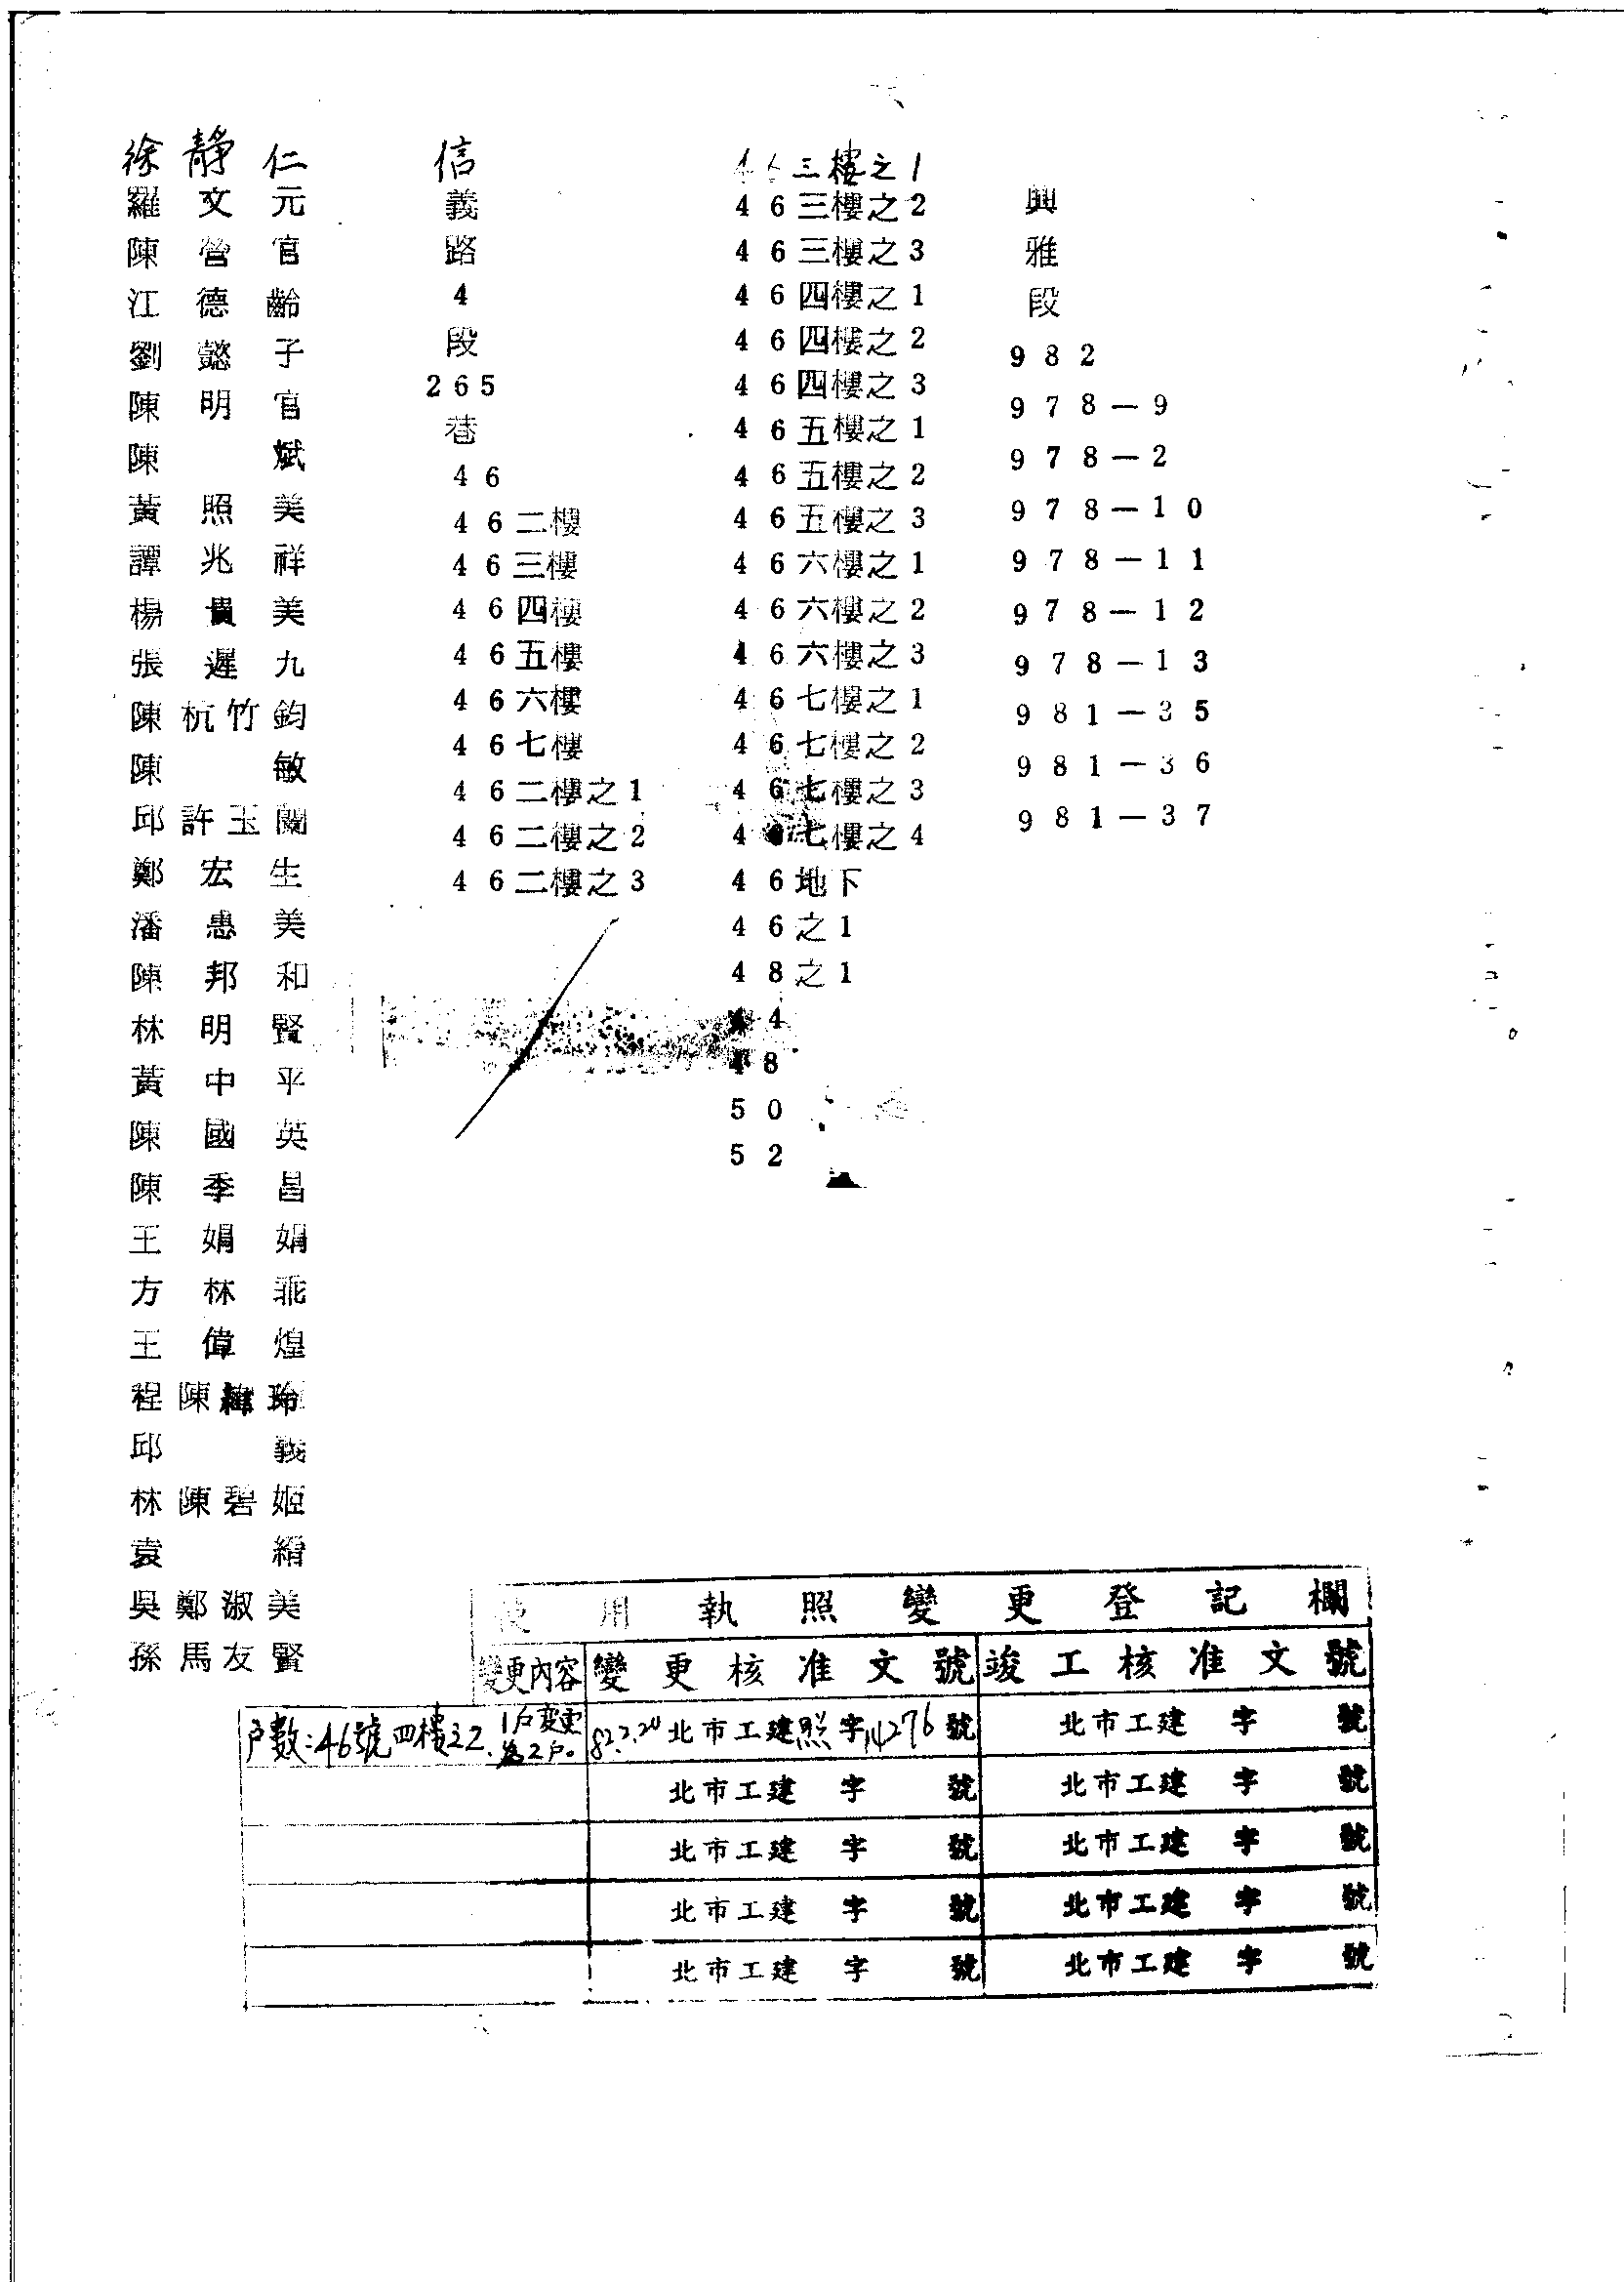 徐靜仁
羅文元
陳營官
江德齡
劉懿子
陳明官
陳斌
黃照美
譚兆祥
楊貴美
張遲九
陳杭竹鈞
陳敏
邱許玉蘭
鄭宏生
潘惠美
陳邦和
林明賢
黃中平
陳國英
陳季昌
王娟娟
方林乖
王偉煌
程陳
邱義
林陳碧姬
袁縉
吳鄭淑美
孫馬友賢
信
義
路
4
段
265
巷
46
46二樓
46三樓
46四樓
46五樓
46六樓
46七樓
46二樓之1
46二樓之2
46二樓之3
46三樓之1
46三樓之2
46三樓之3
46四樓之1
46四樓之2
46四樓之3
46五樓之1
46五樓之2
46五樓之3
46六樓之1
46六樓之2
46六樓之3
46七樓之1
46七樓之2
46七樓之3
46七樓之4
46地下
46之1
48之1
44
48
50
52
興
雅
段
982
978-9
978-2
978-10
978-11
978-12
978-13
981-35
981-36
981-37
使用執照變更登記欄
變更內容 變更核准文號 竣工核准文號
戶數:46號四樓之2.1戶變更為2戶。 82.2.24 北市工建照字14276號 北市工建 字 號
北市工建 字 號 北市工建 字 號
北市工建 字 號 北市工建 字 號
北市工建 字 號 北市工建 字 號
北市工建 字 號 北市工建 字 號